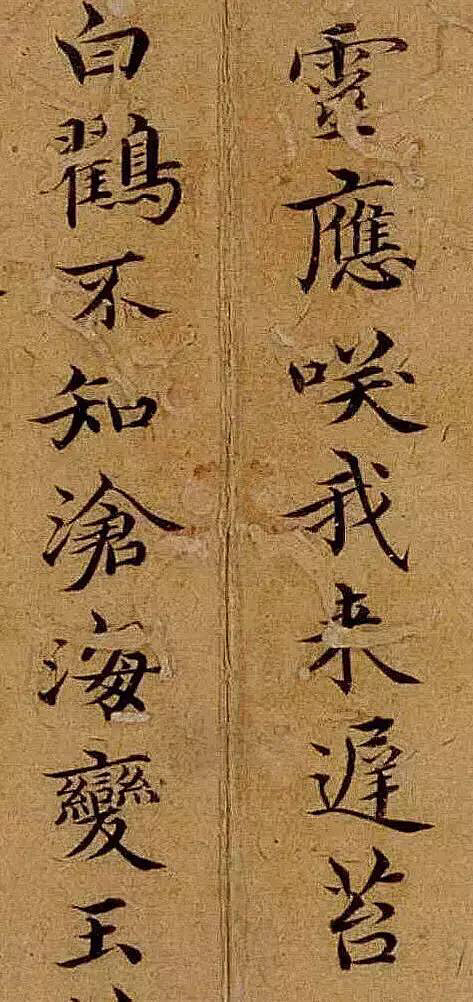 靈應咲我来遲苔
白鸛不知滄海變玉